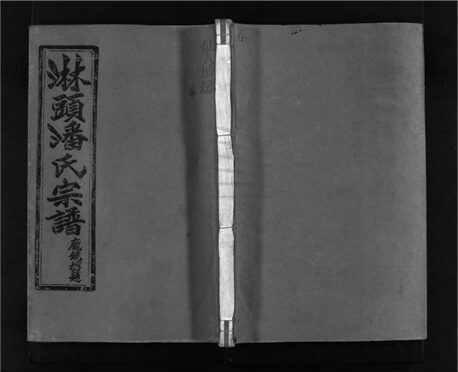 淋頭潘氏宗譜